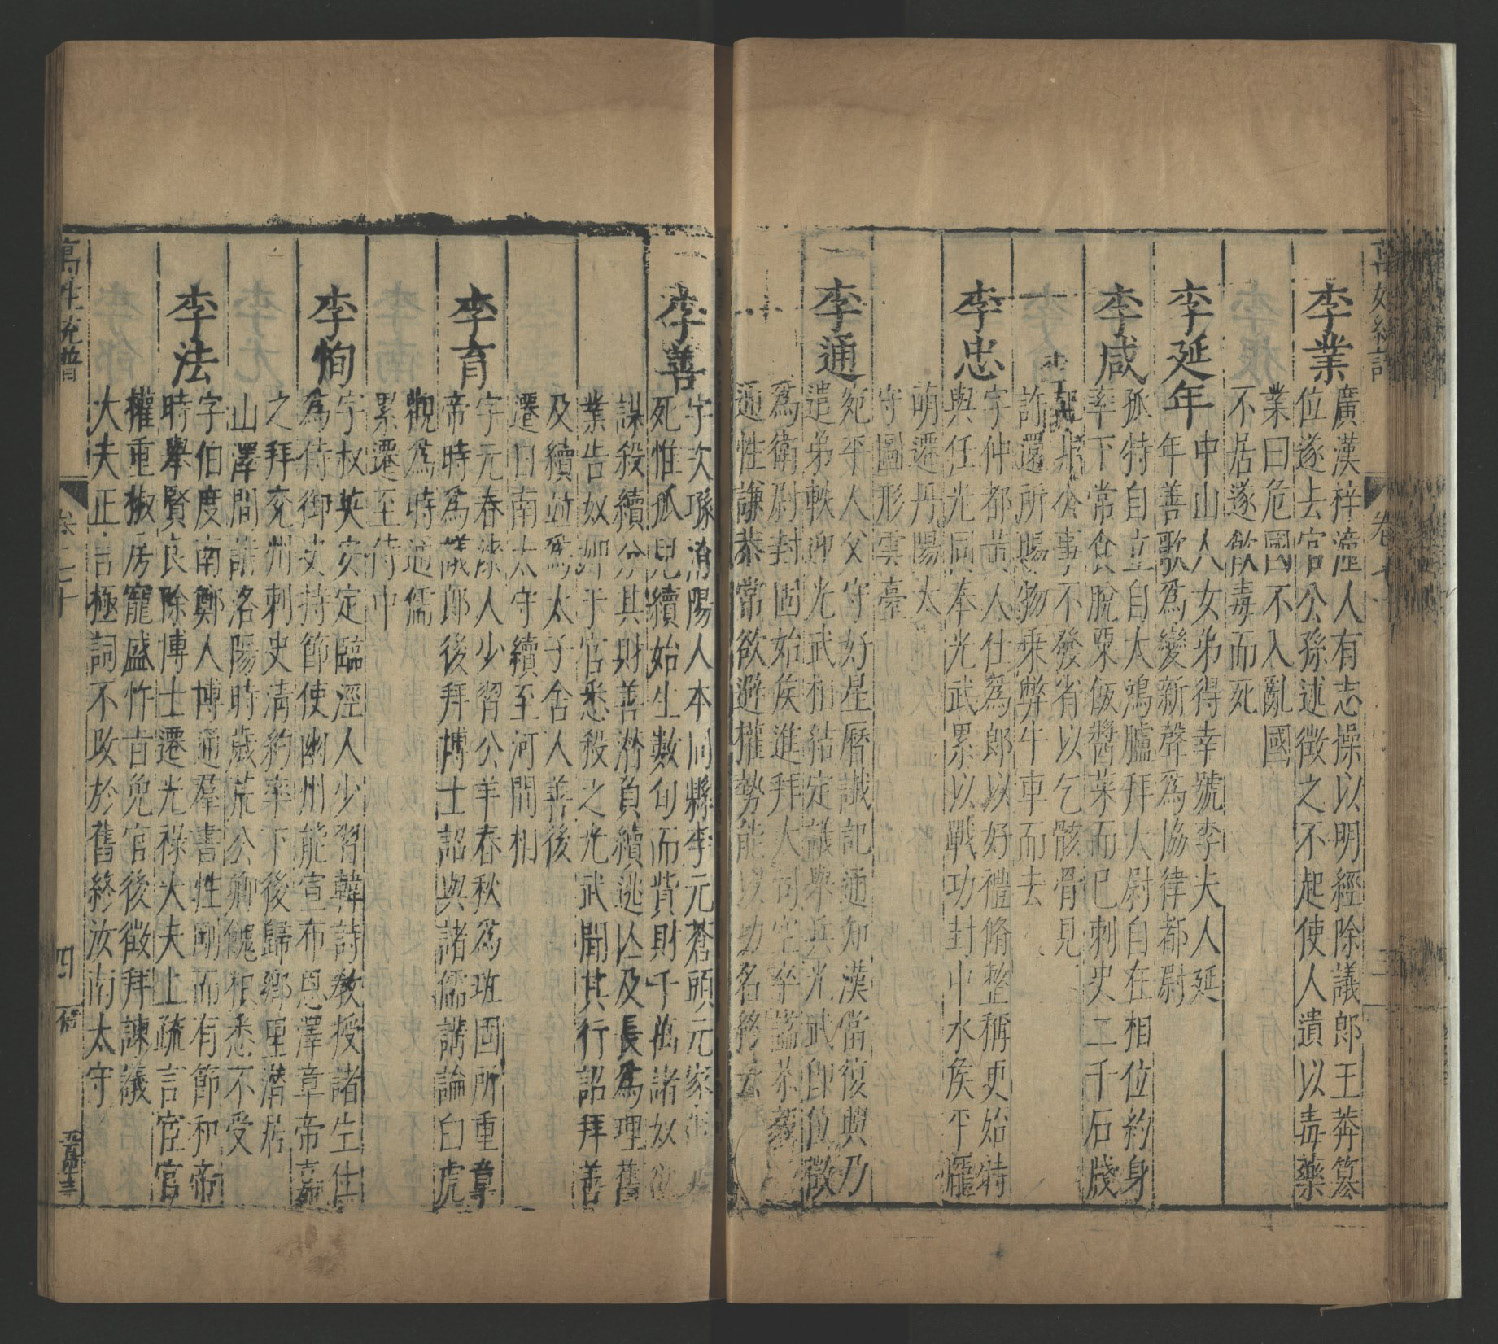 萬姓統譜
卷七十
三
李業
廣漢梓潼人有志操以明經除議郎王莽篡
位遂去官公孫述徵之不起使人遺以毒藥
業曰危國不入亂國
不居遂飲毒而死
李延年
中山人女弟得幸號李夫人延
年善歌為變新聲為協律都尉
李咸
孤特自立自大鴻臚拜大尉自在相位約身
率下常食脫粟飯醬菜而已刺史二千石牋
非公事不發省以乞骸骨見
許還所賜物乘弊牛車而去
李忠
字仲都黃人仕為郎以好禮脩整稱更始特
與任光同奉光武累以戰功封中水侯平隴
萌遷丹陽太
守圖形雲臺
李通
宛平人父守好星曆讖記通知漢當復興乃
遣弟軼迎光武相結定議舉兵光武即位徵
為衛尉封固始侯進拜大司空卒謚恭
通性謙恭常欲避權勢能以功名終云
李善
字次孫淯陽人本同縣李元蒼頭元家
死惟孤兒續始生數旬而貲財千萬諸奴
謀殺續分其財善潛負續逃亾及長為理舊
業告奴於官悉殺之光武聞其行詔拜善
及續並為太子舍人善後
遷日南太守續至河間相
李育
字元春漆人少習公羊春秋為班固所重章
帝時為議郎後拜博士詔與諸儒講論白虎
觀為時通儒
累遷至侍中
李恂
字叔英安定臨涇人少習韓詩教授諸生仕
為侍御史持節使幽州能宣布恩澤章帝嘉
之拜兗州刺史清約率下後歸鄉里潛居
山澤間諸洛陽時歲荒公卿餽粮悉不受
李法
字伯度南鄭人博通羣書性剛而有節和帝
時舉賢良除博士遷光祿大夫上疏言宦官
權重椒房寵盛忤旨免官後徵拜諫議
大夫正言極詞不攺於舊終汝南太守
萬姓統譜
卷七十
四